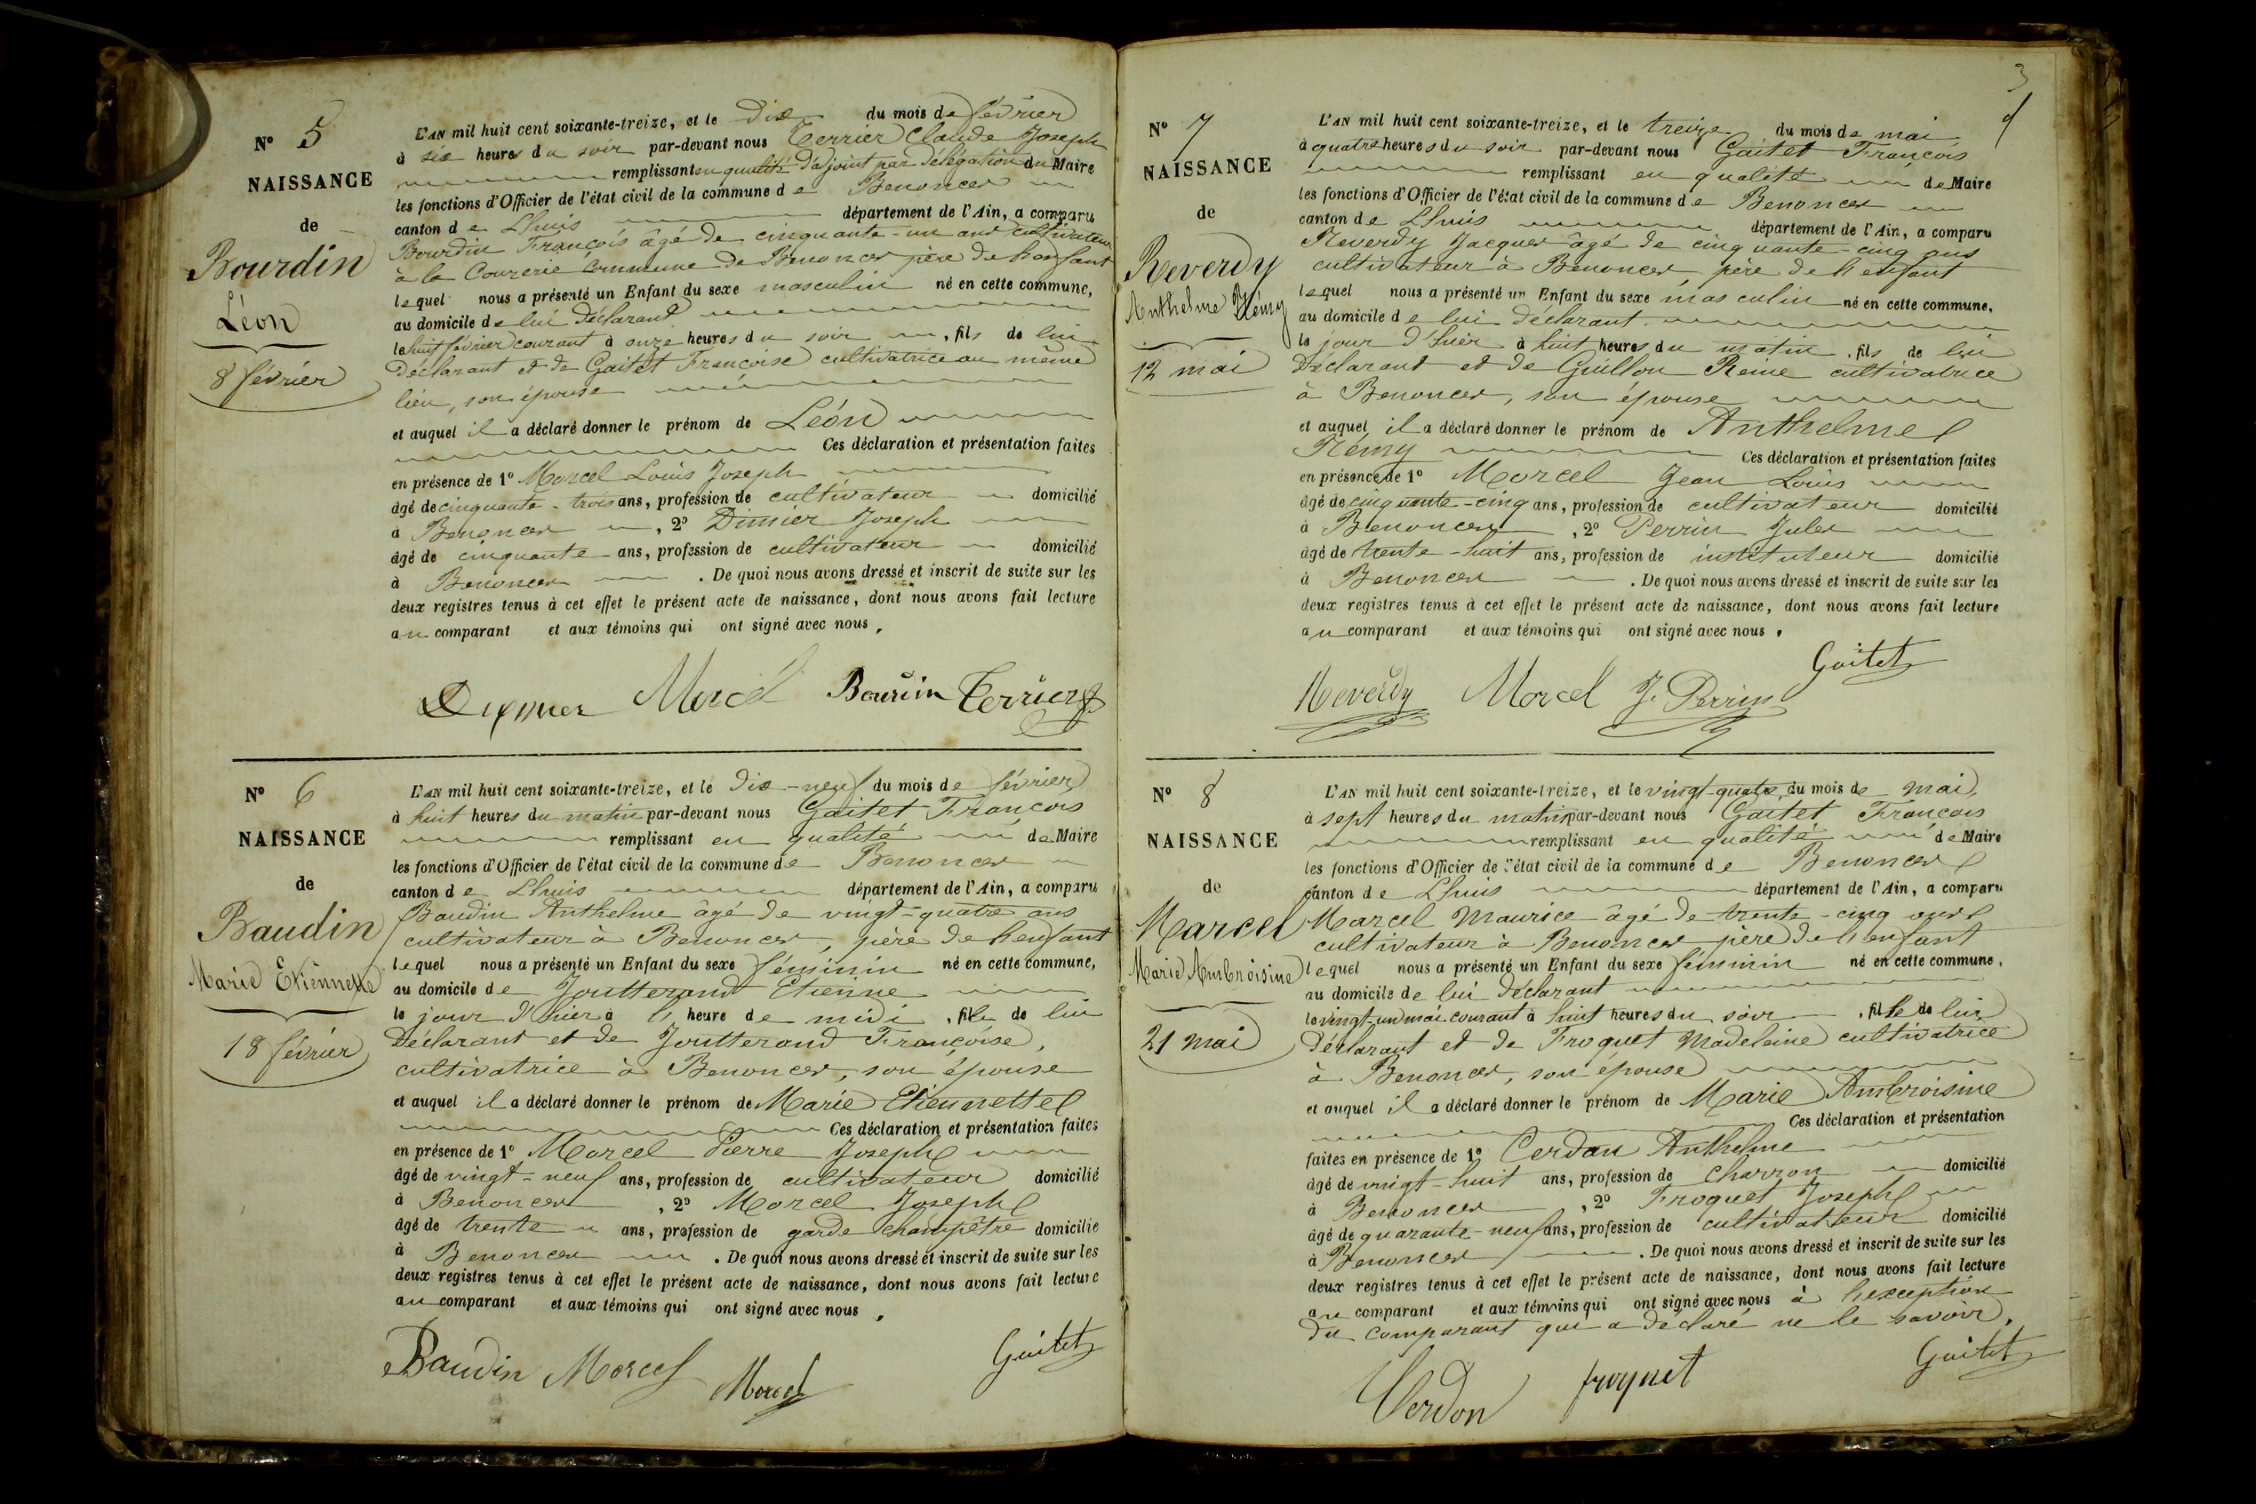 N° 5
NAISSANCE
de
Bourdin
Léon
8 février
L'AN mil huit cent soixante-treize, et le dix du mois de février
à six heures du soir par-devant nous Terrier Claude Joseph
remplissant en qualité d'adjoint par délégation du Maire
les fonctions d'Officier de l'état civil de la commune de Benonces
canton de Lhuis département de l'Ain, a comparu
Bourdin François âgé de cinquante-un ans cultivateur
à la Courerie commune de Benonces père de l'enfant
lequel nous a présenté un Enfant du sexe masculin né en cette commune,
au domicile de lui déclarant
le huit février courant à onze heures du soir, fils de lui
déclarant et de Gaitet Françoise cultivatrice au même
lieu, son épouse
et auquel il a déclaré donner le prénom de Léon
Ces déclaration et présentation faites
en présence de 1° Morcel Louis Joseph
âgé de cinquante-trois ans, profession de cultivateur domicilié
à Benonces, 2° Dimier Joseph
âgé de cinquante ans, profession de cultivateur domicilié
à Benonces. De quoi nous avons dressé et inscrit de suite sur les
deux registres tenus à cet effet le présent acte de naissance, dont nous avons fait lecture
au comparant et aux témoins qui ont signé avec nous.
Morcel Terrier
N° 6
NAISSANCE
de
Baudin
Marie Etiennette
18 février
L'AN mil huit cent soixante-treize, et le dix-neuf du mois de février
à huit heures du matin par-devant nous Gaitet François
remplissant en qualité de Maire
les fonctions d'Officier de l'état civil de la commune de Benonces
canton de Lhuis département de l'Ain, a comparu
Baudin Anthelme âgé de vingt-quatre ans
cultivateur à Benonces, père de l'enfant
lequel nous a présenté un Enfant du sexe féminin né en cette commune,
au domicile de Joutterand Etienne
le jour d'hier à heure de midi, fille de lui
déclarant et de Joutterand Françoise,
cultivatrice à Benonces, son épouse
et auquel il a déclaré donner le prénom de Marie Etiennette
Ces déclaration et présentation faites
en présence de 1° Morcel Pierre Joseph
âgé de vingt-neuf ans, profession de cultivateur domicilié
à Benonces, 2° Morcel Joseph
âgé de trente ans, profession de garde champêtre domicilié
à Benonces. De quoi nous avons dressé et inscrit de suite sur les
deux registres tenus à cet effet le présent acte de naissance, dont nous avons fait lecture
au comparant et aux témoins qui ont signé avec nous.
Baudin Morcel Morcel Gaitet
3
N° 7
NAISSANCE
de
Reverdy
Anthelme Rémy
12 mai
L'AN mil huit cent soixante-treize, et le treize du mois de mai
à quatre heures du soir par-devant nous Gaitet François
remplissant en qualité de Maire
les fonctions d'Officier de l'état civil de la commune de Benonces
canton de Lhuis département de l'Ain, a comparu
Reverdy Jacques âgé de cinquante-cinq ans
cultivateur à Benonces, père de l'enfant
lequel nous a présenté un Enfant du sexe masculin né en cette commune,
au domicile de lui déclarant
le jour d'hier à huit heures du matin, fils de lui
déclarant et de Guillon Reine cultivatrice
à Benonces, son épouse
et auquel il a déclaré donner le prénom de Anthelme
Rémy Ces déclaration et présentation faites
en présence de 1° Morcel Jean Louis
âgé de cinquante-cinq ans, profession de cultivateur domicilié
à Benonces, 2° Perrin Jules
âgé de trente-huit ans, profession de instituteur domicilié
à Benonces. De quoi nous avons dressé et inscrit de suite sur les
deux registres tenus à cet effet le présent acte de naissance, dont nous avons fait lecture
au comparant et aux témoins qui ont signé avec nous.
Reverdy Morcel J. Perrin Gaitet
N° 8
NAISSANCE
de
Marcel
Marie Ambroisine
21 mai
L'AN mil huit cent soixante-treize, et le vingt-quatre du mois de mai
à sept heures du matin par-devant nous Gaitet François
remplissant en qualité de Maire
les fonctions d'Officier de l'état civil de la commune de Benonces
canton de Lhuis département de l'Ain, a comparu
Marcel Maurice âgé de trente-cinq ans
cultivateur à Benonces père de l'enfant
lequel nous a présenté un Enfant du sexe féminin né en cette commune,
au domicile de lui déclarant
le vingt-un mai courant à huit heures du soir, fille de lui
déclarant et de Froquet Madeleine cultivatrice
à Benonces, son épouse
et auquel il a déclaré donner le prénom de Marie Ambroisine
Ces déclaration et présentation
faites en présence de 1° Cerdon Anthelme
âgé de vingt-huit ans, profession de charron domicilié
à Benonces, 2° Froquet Joseph
âgé de quarante-neuf ans, profession de cultivateur domicilié
à Benonces. De quoi nous avons dressé et inscrit de suite sur les
deux registres tenus à cet effet le présent acte de naissance, dont nous avons fait lecture
au comparant et aux témoins qui ont signé avec nous à l'exception
du comparant qui a déclaré ne le savoir.
Cerdon froquet Gaitet